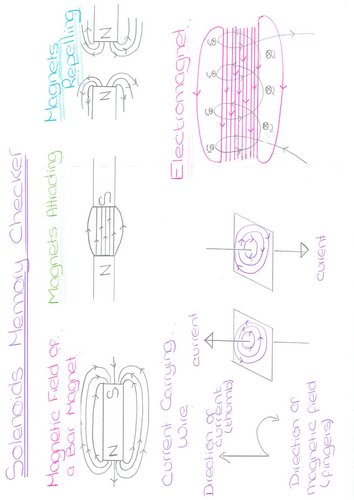 Solenoids Memory Checker
Magnetic Field of
a Bar Magnet
N
S
Magnets Attracting
N
S
Magnets
Repelling
N
N
Current Carrying
Wire
Direction of
current
(thumb)
Direction of
magnetic field
(fingers)
current
current
Electromagnet